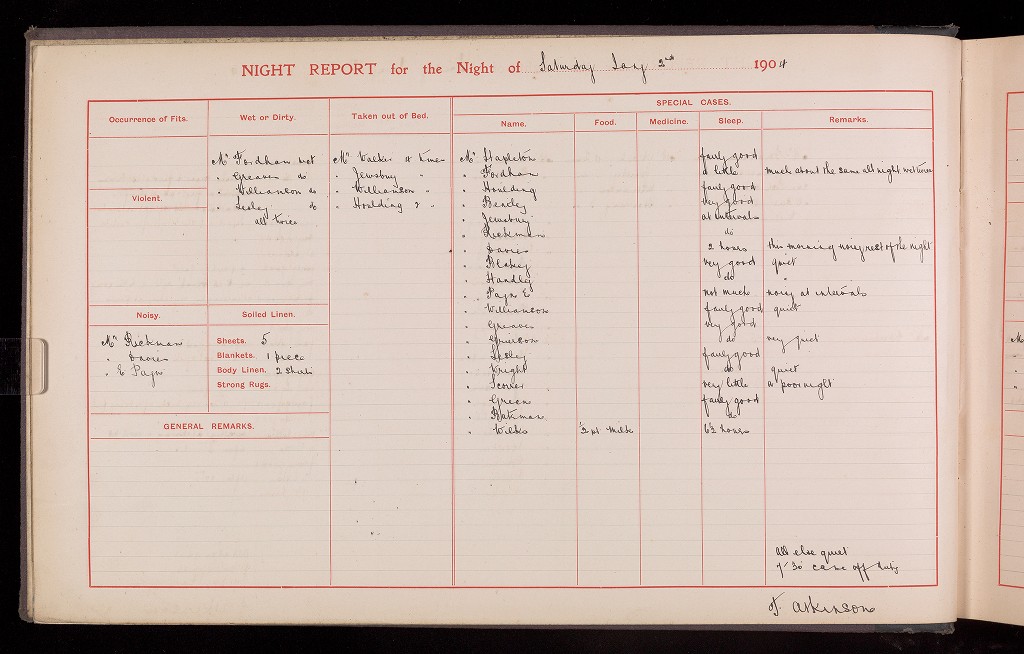 NIGHT REPORT for the Night of Saturday Jany 2nd 1904
Occurrence of Fits.
Violent.
Noisy.
Mr Rickman
" Davies
" E Payn
Wet or Dirty.
Mr Fordham wet
" Greaves do
" Williamson do
" Lesley do
all twice
Soiled Linen.
Sheets. 5
Blankets. 1 piece
Body Linen. 2 Shirts
Strong Rugs.
GENERAL REMARKS.
Taken out of Bed.
Mr Walker 4 times
" Jewsbury "
" Williamson "
" Houlding 2 "
SPECIAL CASES.
Name. Food. Medicine. Sleep. Remarks.
Mr Stapleton fairly good
" Fordham a little much about the same all night wet twice
" Houlding fairly good
" Bencley very good
" Jewsbury at intervals
" Rickman do
" Davies 2 hours this morning noisy rest of the night
" Blakey very good quiet
" Handley do "
" Payn E not much noisy at intervals
" Williamson fairly good quiet
" Greaves very good
" Grierson do very quiet
" Lesley fairly good
" Wright do quiet
" Scorer very little a poor night
" Green fairly good
" Bateman do
" Wilks 1/2 pt Milk 6½ hours
All else quiet
7-30 came off duty
F. Atkinson